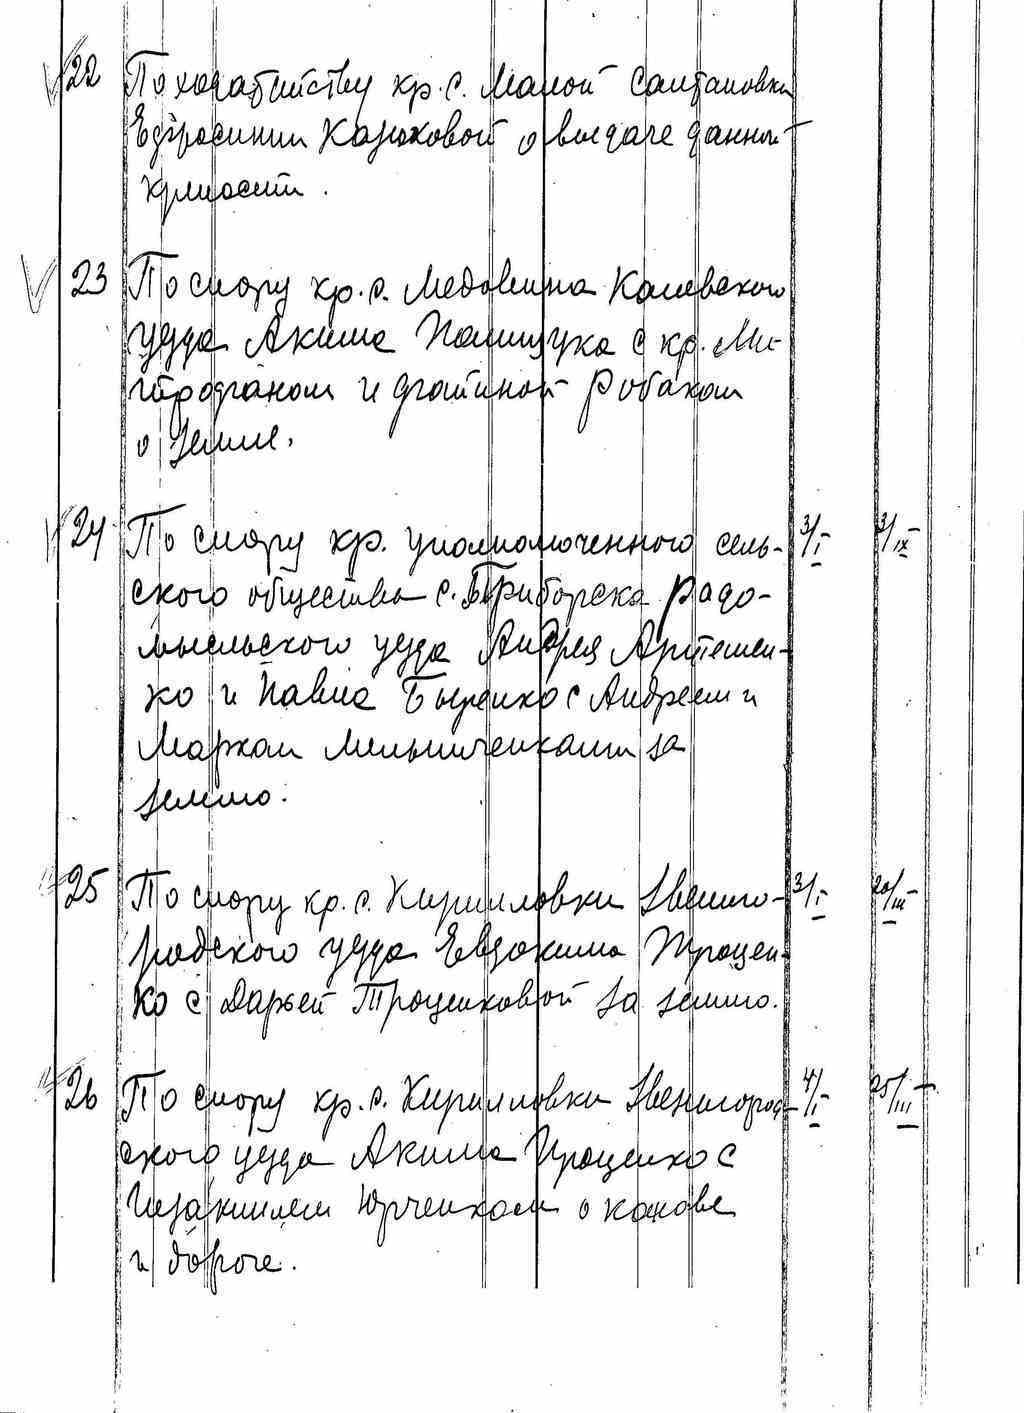 22 По ходатайству кр. с. Малой Салтановки
Ефросинии Казюковой о выдаче данной
крепости.
23 По спору кр. с. Медовина Каневского
уезда Акима Полищука с кр. Ми-
трофаном и Фотиной Робаком
о земле.
24 По спору кр. уполномоченного сель- 3/I 3/IX
ского общества с. Приборска Радо-
мысльского уезда Андрея Артемен-
ко и Павла Быценко с Андреем и
Марком Мельниченками за
землю.
25 По спору кр. с. Кирилловки Звениго- 3/I 20/III
родского уезда Евдокима Троцен-
ко с Дарьей Троценковой за землю.
26 По спору кр. с. Кирилловки Звенигород- 4/I 25/III
ского уезда Акима Проценко с
Иезакиилем Юрченком о канаве
и дороге.